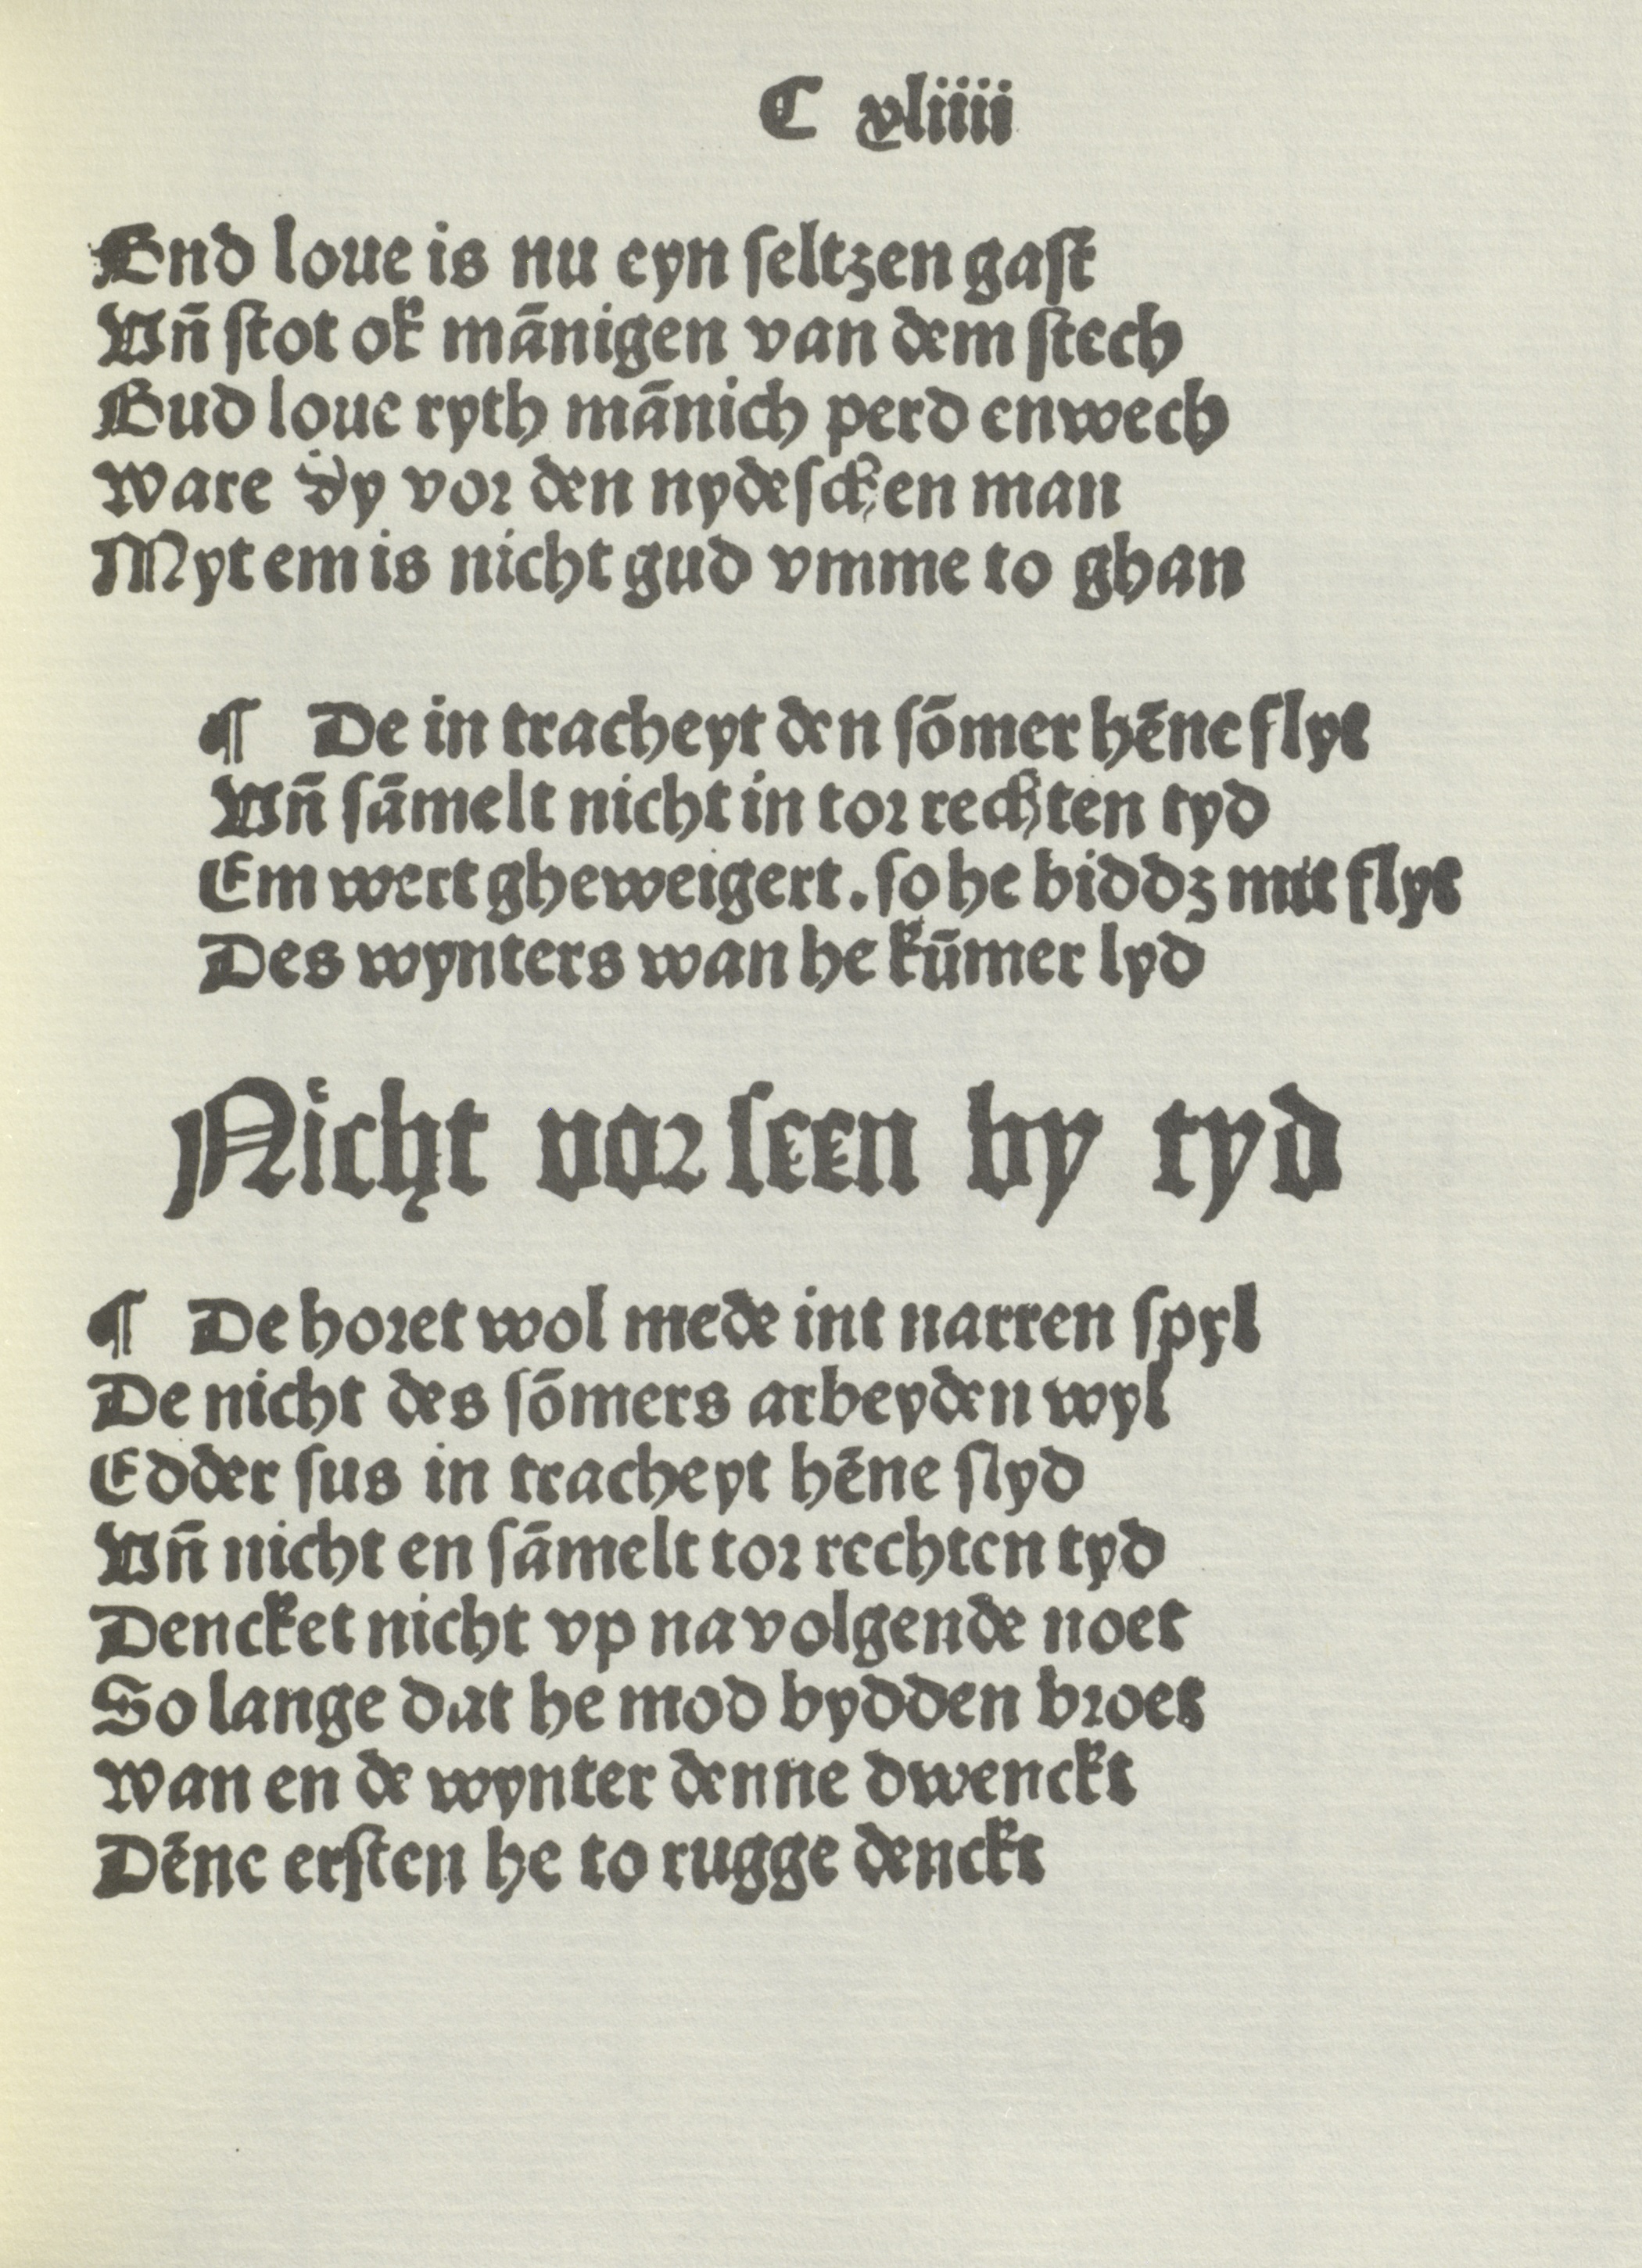 C xliiii
Gud loue is nu eyn ſeltzen gaſt
Vñ ſtot ok mānigen van dem ſtech
Gud loue ryth mānich perd enwech
Ware dy vor den nydeſcken man
Myt em is nicht gud vmme to ghan
¶ De in tracheyt den ſōmer hēne flyt
Vñ ſāmelt nicht in tor rechten tyd
Em wert gheweigert. ſo he biddꝫ mit flyt
Des wynters wan he kūmer lyd
Nicht vor ſeen by tyd
¶ De horet wol mede int narren ſpyl
De nicht des ſōmers arbeyden wyl
Edder ſus in tracheyt hēne ſlyd
Vñ nicht en ſāmelt tor rechten tyd
Dencket nicht vp na volgende noet
So lange dat he mod bydden broet
Wan en de wynter denne dwenckt
Dēne erſten he to rugge denckt